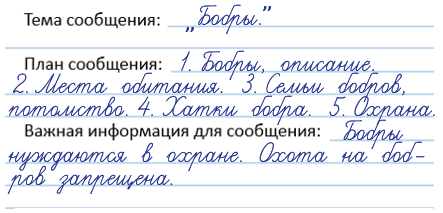 Тема сообщения: „Бобры.”
План сообщения: 1. Бобры, описание.
2. Места обитания. 3. Семьи бобров,
потомство. 4. Хатки бобра. 5. Охрана.
Важная информация для сообщения: Бобры
нуждаются в охране. Охота на боб-
ров запрещена.